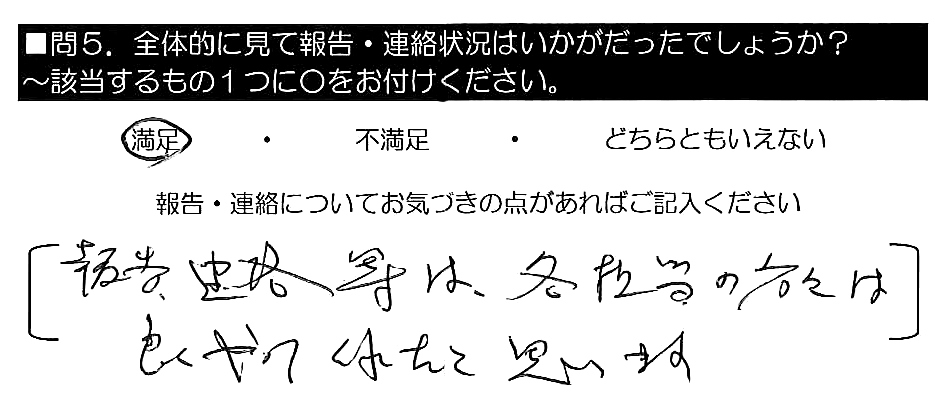 ■問5．全体的に見て報告・連絡状況はいかがだったでしょうか？
～該当するもの1つに○をお付けください。
満足 ・ 不満足 ・ どちらともいえない
報告・連絡についてお気づきの点があればご記入ください
報告、連絡等は、各担当の方々は
良くやってくれたと思います